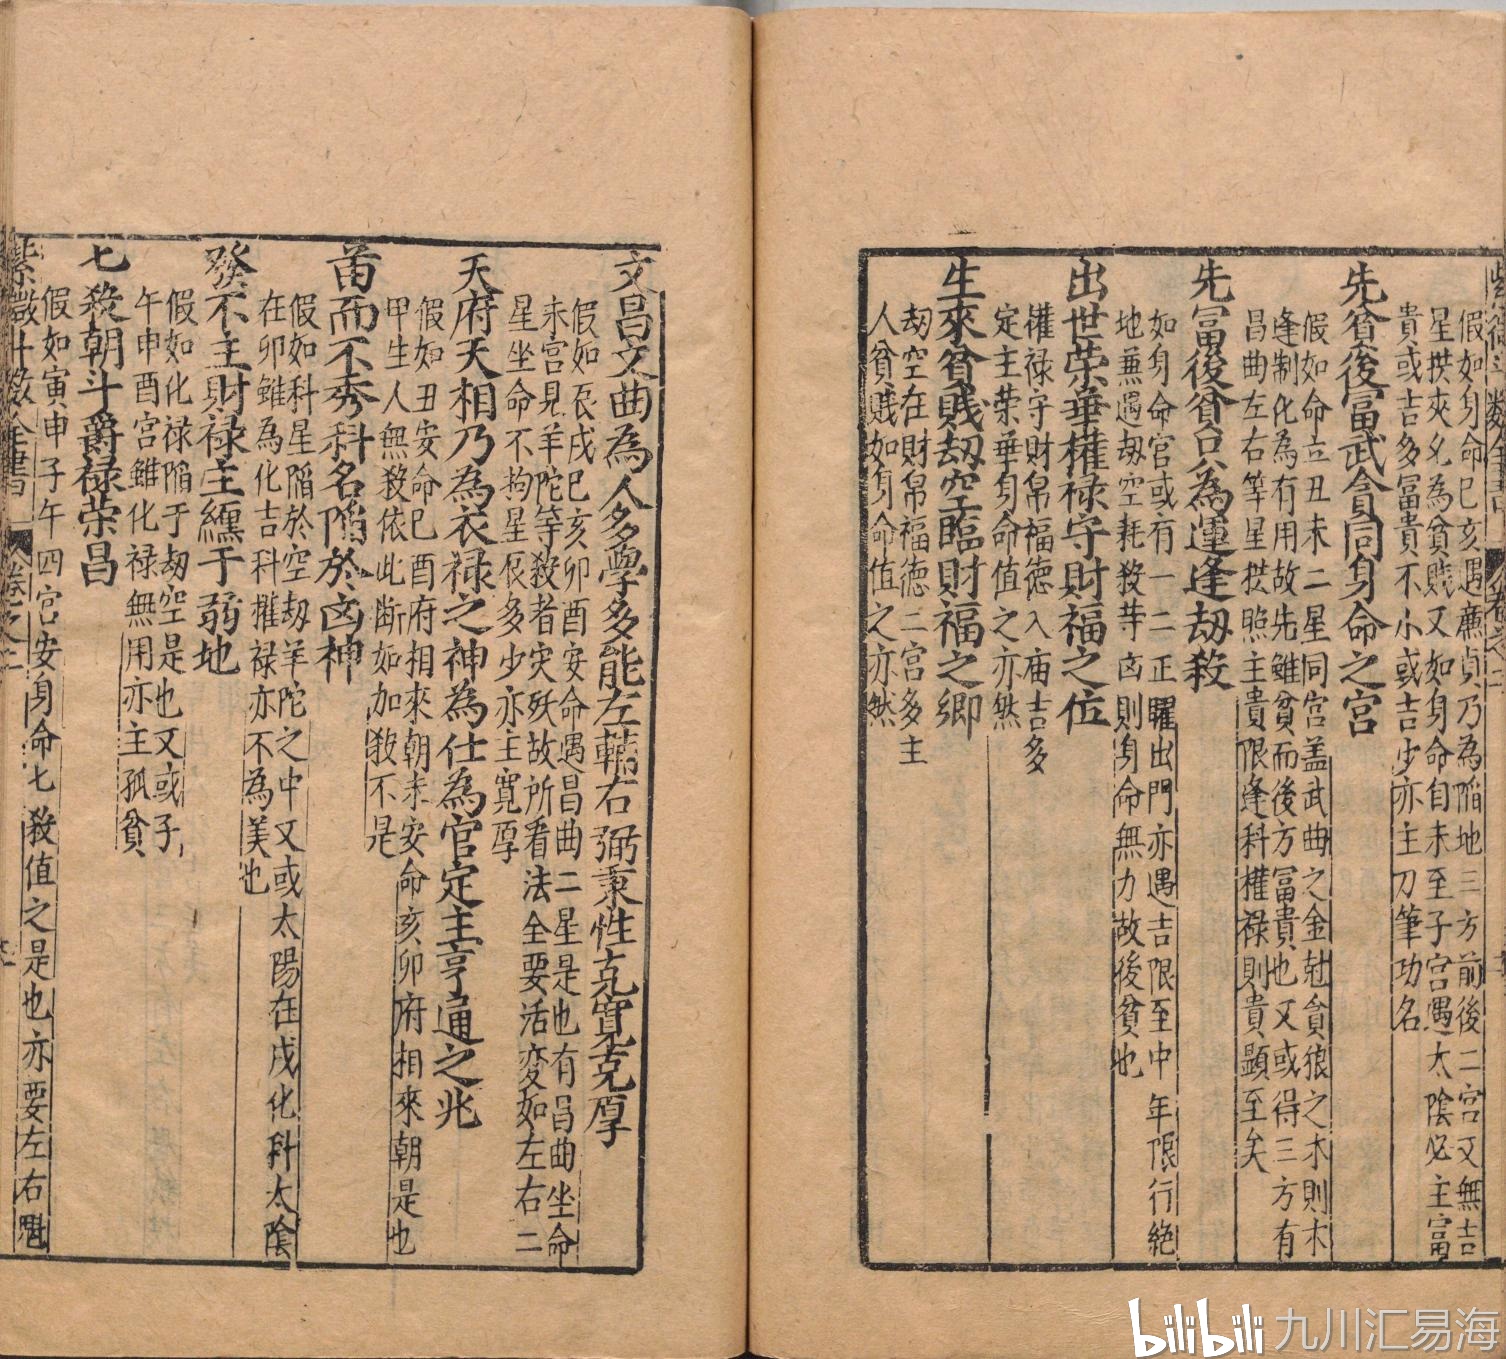 紫微斗數全書 卷之二
假如身命巳亥遇廉貞乃為陷地三方前後二宮又無吉
星拱夾乆為貧賤又如身命自未至子宮遇太陰必主富
貴或吉多冨貴不小或吉少亦主刀筆功名
先貧後富武貪同身命之宮
假如命立丑未二星同宮盖武曲之金尅貪狼之木則木
逢制化為有用故先雖貧而後方冨貴也又或得三方有
昌曲左右等星拱照主貴限逢科權禄則貴顯至矣
先冨後貧只為運逢刼殺
如身命宮或有一二正曜出門亦遇吉限至中年限行絕
地無遇刼空耗殺䓁凶則身命無力故後貧也
出世荣華權禄守財福之位
權禄守財帛福德入庙吉多
定主荣華身命值之亦然
生來貧賤刼空臨財福之鄉
刼空在財帛福德二宮多主
人貧贱如身命值之亦然
文昌文曲為人多學多能左輔右弼秉性克寬克厚
假如辰戌巳亥卯酉安命遇昌曲二星是也有昌曲坐命
未宮見羊陀等殺者灾殀故所看法全要活変如左右二
星坐命不拘星辰多少亦主寬厚
天府天相乃為衣禄之神為仕為官定主亨通之兆
假如丑安命巳酉府相來朝未安命亥卯府相來朝是也
甲生人無殺依此断如加殺不是
苗而不秀科名陷於凶神
假如科星陷於空刼羊陀之中又或太陽在戌化科太陰
在卯雖為化吉科權禄亦不為美也
發不主財禄主纏于弱地
假如化禄陷于刼空是也又或子
午申酉宮雖化禄無用亦主孤貧
七殺朝斗爵禄荣昌
假如寅申子午四宮安身命七殺值之是也亦要左右魁
紫微斗數全書 卷之二
bilibili 九川汇易海